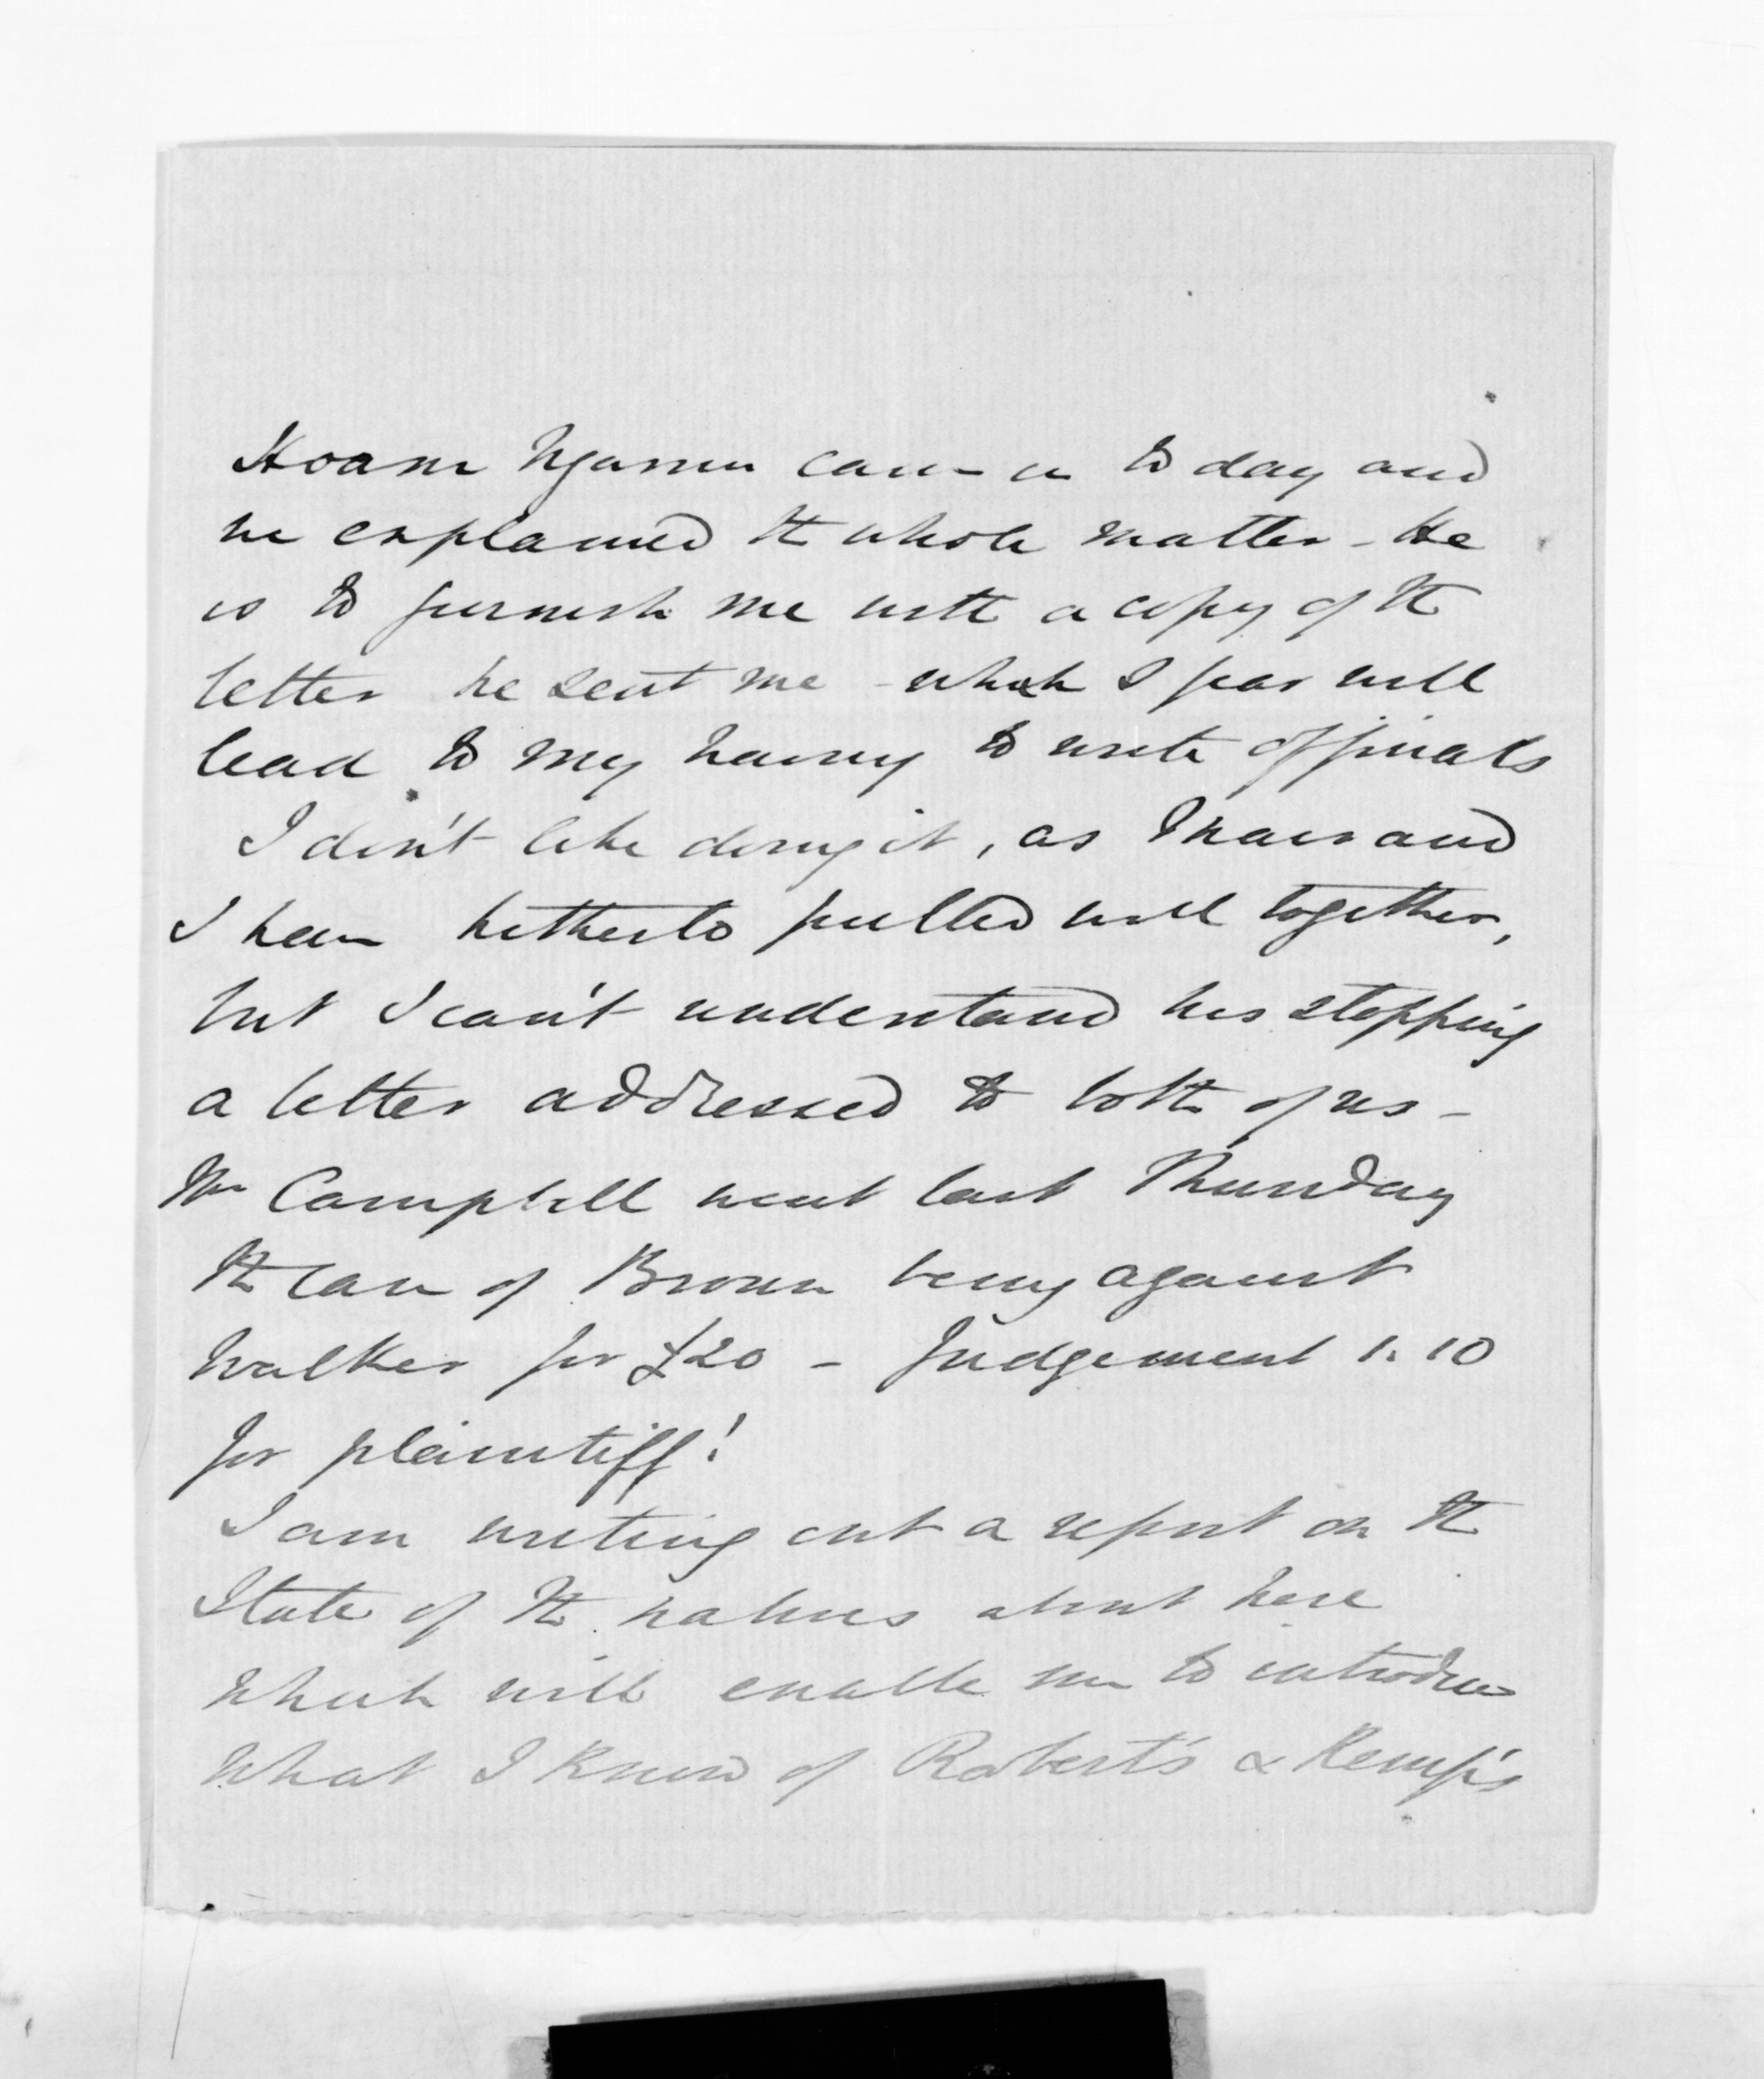 Hoani Ngamu came in to day and
he explained the whole matter - He
is to furnish me with a copy of the
letter he sent me - which I fear will
lead to my having to write officials
I don't like doing it, as and
I have hitherto pulled well together,
but I can't understand his stopping
a letter addressed to both of us -
Mr Campbell went last Thursday
the case of Brown being against
Walker for £20 - Judgement 1.10
for plaintiff!
I am writing out a report on the
State of the natives about here
which will enable me to introduce
what I know of Robert's & Kemp's